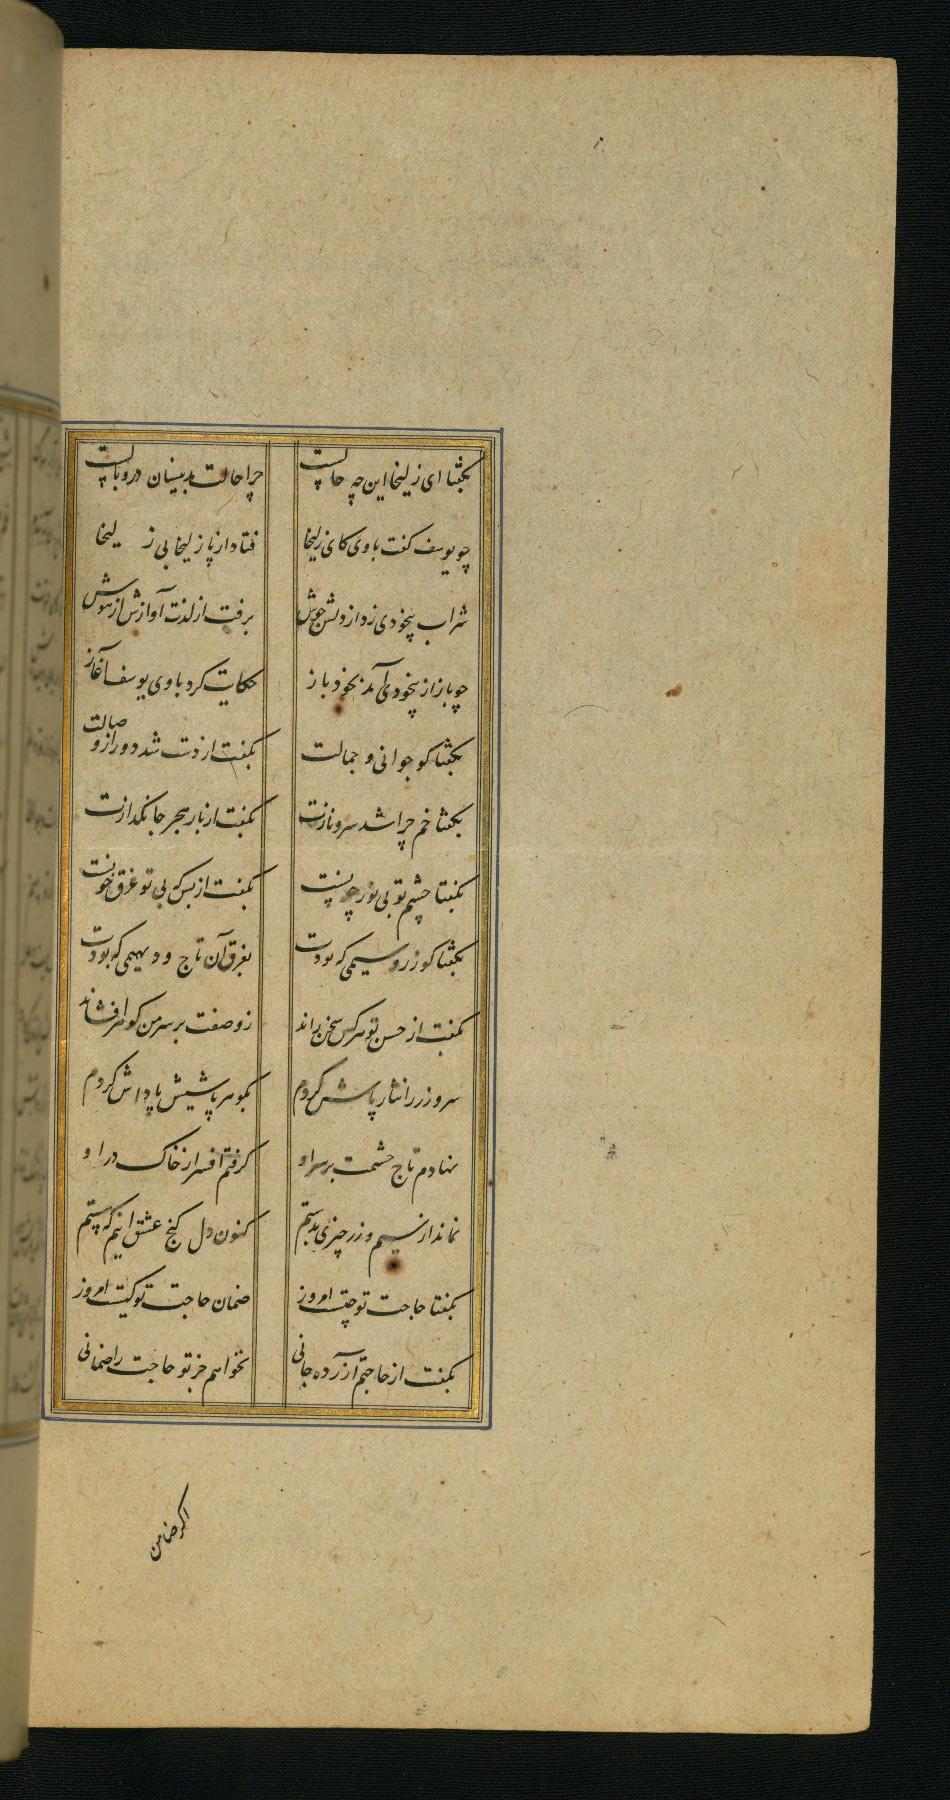 بگفتا ای زلیخا این چه حالست چرا حالت بدینسان در وبالست
چو یوسف گفت با وی کای زلیخا فتاد از پا زلیخا بی زلیخا
شراب بیخودی زد از دلش جوش برفت از لذت آوازش از هوش
چو باز از بیخودی آمد بخود باز حکایت کرد با وی یوسف آغاز
بگفتا کو جوانی و جمالت بگفت از دست شد دور از وصالت
بگفتا خم چرا شد سرو نازت بگفت از بار هجر جانگدازت
بگفتا چشم تو بی نور چونست بگفت از بس که بی تو غرق خونست
بگفتا کو زر و سیمی که بودت بفرق آن تاج و دیهیمی که بودت
بگفت از حسن تو هر کس سخن راند ز وصفت بر سر من گوهر افشاند
سر و زر را نثار پاش کردم بگوهر پاشیش پاداش کردم
نهادم تاج حشمت بر سر او گرفتم افسر از خاک در او
نماند از سیم و زر چیزی بدستم کنون دل گنج عشق اینم که هستم
بگفتا حاجت تو چیست امروز ضمان حاجت تو کیست امروز
بگفت از حاجتم آزرده جانی نخواهم جز تو حاجت را ضمانی
اگر ضامن